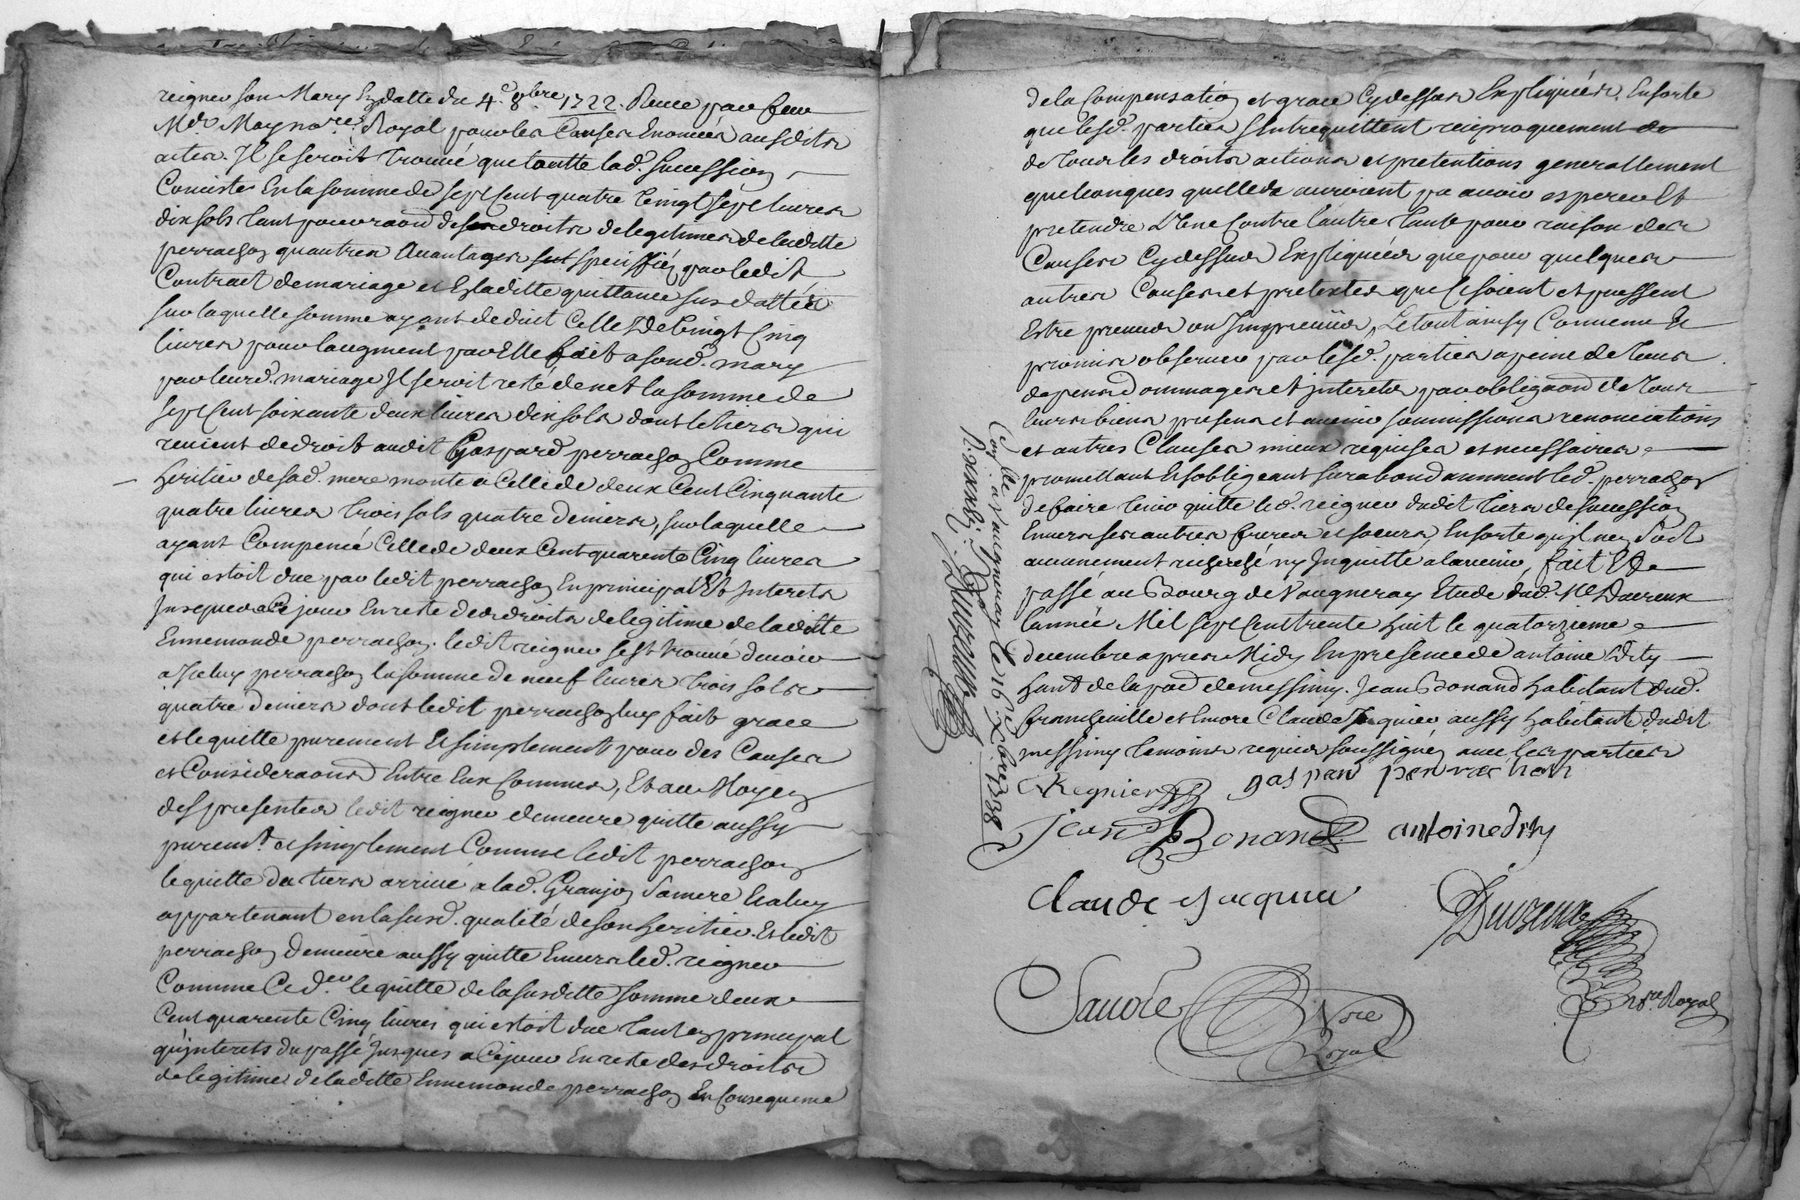 reigner son Mary En datte du 4.e 8bre 1722. Receu par feu
Me Maynare Royal pour les Causes Enoncées ausdits
actes. Il se seroit trouvé que toutte lad. succession
Conciste En la somme de sept Cent quatre Vingt sept livres
dix sols tant pour raōn de ses droits de legitimes de laditte
perrachon qu'autres Avantages spessiffiéz par ledit
Contract de mariage et En laditte quittance sus dattéé
sur laquelle somme ayant deduit Celle De Vingt Cinq
livres pour laugment par Elle fait a sond. mary
par leurd. mariage Il seroit resté de net la somme de
sept Cent soixante deux livres dix sols dont le tiers qui
revient de droit audit Gaspard perrachon Comme
Heritier de sad. mere monte a Celle de deux Cent Cinquante
quatre livres trois sols quatre deniers, sur laquelle
ayant Compencé Celle de deux Cent quarente Cinq livres
qui estoit due par ledit perrachon En principal Et Interets
Jusques a Ce jour En reste des droits de legitime de laditte
Ennemonde perrachon. ledit reigner sest trouvé devoir
a Iceluy perrachon la somme de neuf livres trois sols
quatre deniers dont ledit perrachon luy fait grace
et le quitte purement Et simplement pour des Causes
et Consideraōns Entre Eux Connues, Et au Moyen
des presentes ledit reigner demeure quitte aussy
purem.t et simplement Comme ledit perrachon
le quitte du tiers arrivé a lad. Granjon sa mere a luy
appartenant en la susd. qualité de son heritier. Et ledit
perrachon demeure aussy quitte Envers led. reigner
Comme Ce d.er le quitte de la susditte somme deux
Cent quarente Cinq livres qui estoit due tant en principal
qu'interets du passé Jusques a Ce jour En reste des droits
de legitimes de laditte Ennemonde perrachon En Consequence
de la Compensation et grace Cy dessus Expliquéés. En sorte
que lesd. parties s'Entrequittent reciproquement de
de tous les droits actions et pretentions generallement
quelconques quelles auroient pu avoir esperer Et
pretendre L'Une Contre l'autre tant pour raison des
Causes Cy dessus Expliquéés que pour quelques
autres Causes et pretextes que Ce soient et puissent
Estre preveus ou Impreveus, Le tout ainsy Convenu Et
promis observer par lesd. parties a peine de tous
depens dommages et interets par obligaōn de tous
leurs biens presens et avenir soumissions renonciations
et autres Clauses mieux requises et necessaires
promettant Et sobligeant surabondamment led. perrachon
de faire tenir quitte led. reigner dudit tiers de succession
Envers ses autres freres et soeurs En sorte quil nen soit
aucunement recherché ny Inquitté a l'avenir, fait Et
passé au Bourg de Vaugneray Etude dud. Me Duvreux
Lannée Mil sept Cent trente huit le quatorzieme
decembre apres Midy En presence de antoine Drity
Hant de la par de messimy. Jean Bonand habitant dud.
francheville et Encore Claude Jacquier aussy habitant dudit
messimy temoins requis soussignéz avec les parties
Conllé a Vaugneray le 16 Xbre 1738
Regnier gaspard perrachon
Jean Bonand antoine drity
Claude Jacquier
Nore
Royal
nre Royal